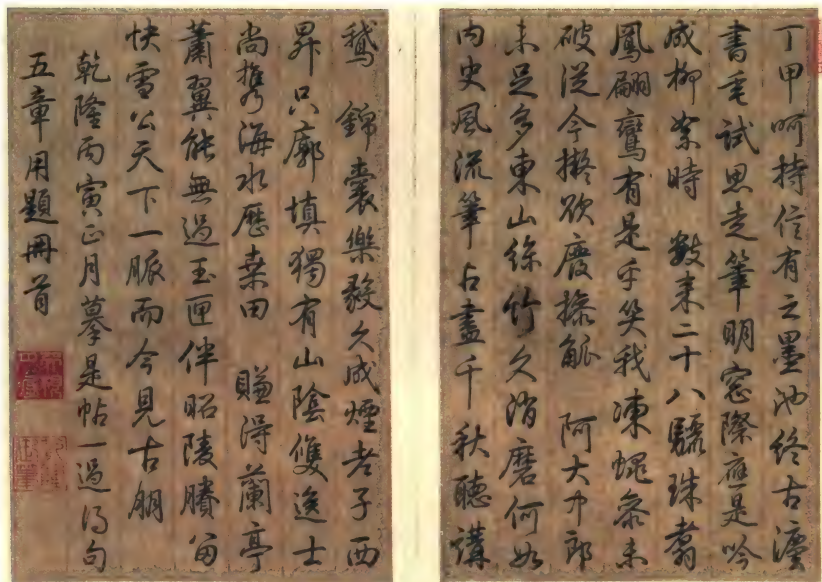 丁甲呵持信有之墨池終古瀋
書毫試思走筆明窗際應是吟
成柳絮時 數来二十八驪珠翥
鳳翩鸞有是乎笑我凍蠅參未
破從今擬欲廢操觚 阿大中郎
未足多東山絲竹久消磨何如
内史風流筆占盡千秋聽講
鵝 錦囊樂毅久成煙老子西
昇只廓填獨有山陰雙逸士
尚攜海水歷桑田 賺得蘭亭
蕭翼能無過玉匣伴昭陵賸留
快雪公天下一脈而今見古朋
乾隆丙寅正月摹是帖一過得句
五章用題冊首